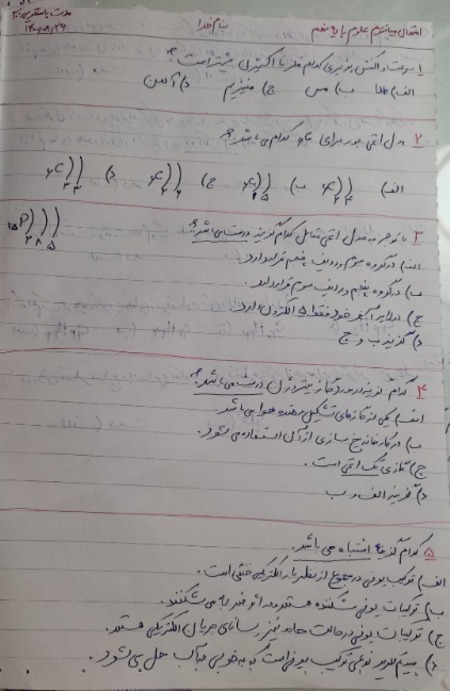 بنام خدا
امتحان میانترم علوم پایه نهم
۱ سرعت واکنش پذیری کدام فلز با اکسیژن بیشتر است؟
الف) طلا ب) مس ج) منیزیم د) آهن
۲ مدل اتمی بور برای ₆C کدام می باشد؟
الف) ₆C )) ۲ ۴ ب) ₆C )) ۱ ۵ ج) ₆C )) ۲ ۶ د) ₆C )) ۳ ۳
۳ با توجه به مدل اتمی مقابل کدام گزینه درست می باشد؟ ₁₅P ))) ۲ ۸ ۵
الف) در گروه سوم و ردیف پنجم قرار دارد.
ب) در گروه پنجم و ردیف سوم قرار دارد.
ج) در لایه آخر خود فقط ۵ الکترون دارد.
د) گزینه ب و ج
۴ کدام گزینه در مورد گاز نیتروژن درست می باشد؟
الف) یکی از گازهای تشکیل دهنده هوا می باشد.
ب) در کارخانه یخ سازی از آن استفاده می شود.
ج) گازی تک اتمی است.
د) گزینه الف و ب
۵ کدام گزینه اشتباه می باشد.
الف) ترکیب یونی در مجموع از نظر بار الکتریکی خنثی است.
ب) ترکیبات یونی شکننده هستند و در اثر ضربه می شکنند.
ج) ترکیبات یونی در حالت جامد نیز رسانای جریان الکتریکی هستند.
د) سدیم کلرید نوعی ترکیب یونی است که به خوبی در آب حل می شود.